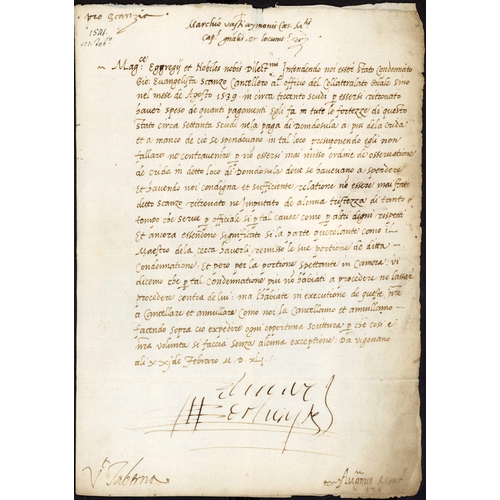 pro Scanzio
1541
21 Feb.
Marchio Vasti Aymonii Ces. Ma.tis
Cap.s gnalis, et locumt. &
Mag.ce Eggregij et Nobiles nobis Dilet.mi Intendendo noi esser stato Condennato
Gio: Evangelista Scanze Cancellero al officio del Collateralato Quale sino
nel mese de Agosto 1539 in circa trecento scudi p essersi ritrovato
haveri speso de quanti pagamenti egli fa in tute le fortezze di questo
stato circa Settanta Scudi nela paga di Domdosula a piu dela crida
et a manco de cio se spendevano in tal loco presuponendo egli non
fallare ne contravenire p non essersi mai misso ordine de osservatione
de crida in detto loco di Domdosula dove se havevano a spendere
Et havendo noi condigna et sufficente relatione no essere mai stato
detto Scanze ritrovato ne Imputato de alcuna tristezza di tanto
tempo che serve p officiale si p tal cause come p altri degni rispetti
Et ancora essendone significato si la parte querelante come il
Maestro dela cecca haverli remisso le sue portione de ditta
Condennatione, Et pero per la portione spettante in Camera, vi
dicemo che p tal Condennatione piu no habiati a procedere ne lasser
procedere contra de lui: ma habiate in executione de queste nre
a Cancellare et annullare Como noi la Cancellamo et annullamo
facendo sopra cio expedire ogni oportuna scrittura p che cosi e
nra volunta si faccia senza alcuna exceptione. Da Vigevano
ali xxj de Febraro M D xLj
V. Taberna